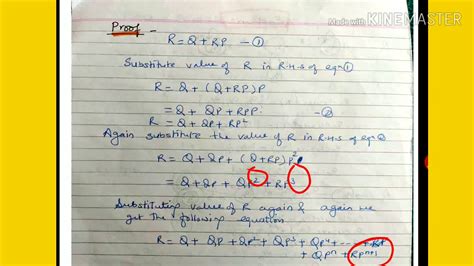 Made with KINEMASTER
Proof -
R = Q + RP - ①
Substitute value of R in R.H.S of eqn ①
R = Q + (Q+RP)P
R = Q + QP + RPP. - ②
R = Q + QP + RP²
Again substitute the value of R in R.H.S of eqn ②
R = Q + QP + (Q+RP)P²
= Q + QP + QP² + RP³
Substituting value of R again & again we
get the following equation
R = Q + QP + QP² + QP³ + QP⁴ + ----
+ QPⁿ + RPⁿ⁺¹